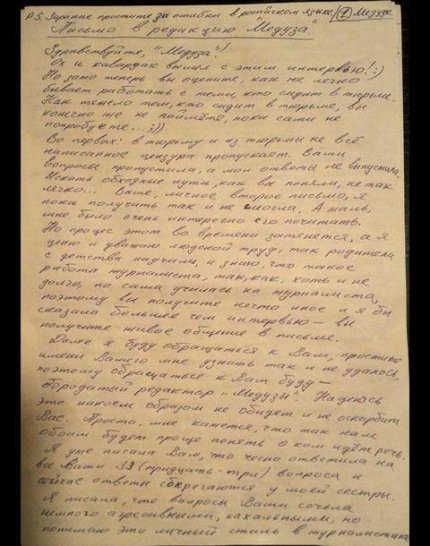 P.S. Заранее простите за ошибки в русском языке, (1) Медузе
Письмо в редакцию "Медуза".
Здравствуйте, "Медуза"!
Ох и кавардак вышел с этим интервью! :)
Но зато теперь вы оцените, как не легко
бывает работать с теми, кто сидит в тюрьме.
Как тяжело тем, кто сидит в тюрьме, вы
конечно же не поймёте, пока сами не
попробуете...;))
Во первых: в тюрьму и из тюрьмы не всё
написанное цензура пропускает. Вами
вопросы пропустила, а мои ответы не выпустила.
Искать обходные пути, как вы поняли, не так
легко... Ваше, личное, второе письмо, я
пока получить так и не смогла, А жаль,
мне было очень интересно его почитать.
Но процес этот во времени затянется, а я
ценю и уважаю людской труд, так родители
с детства научили, и знаю, что такое
работа журналиста, так, как, хоть и не
долго, но сама училась на журналиста,
поэтому вы получите нечто иное и я бы
сказала больше чем интервью – вы
получите живое общение в письме.
Далее я буду обращаться к Вам, простите
имени Вашего мне узнать так и не удалось,
поэтому обращаться к Вам буду –
бородатый редактор "Медузы". Надеюсь
это никоем образом не обидет и не оскорбит
Вас. Просто, мне кажется, что так нам
обоим будет проще понять о ком идёт речь.
Я уже писала Вам, что чесно ответила на
все Вами 33 (тридцать-три) вопроса и
сейчас ответы сберегаются у моей сестры.
Я писала, что вопросы Вами сочла
немного агресивными, нахальными, но
понимаю это личный стиль в журналистике